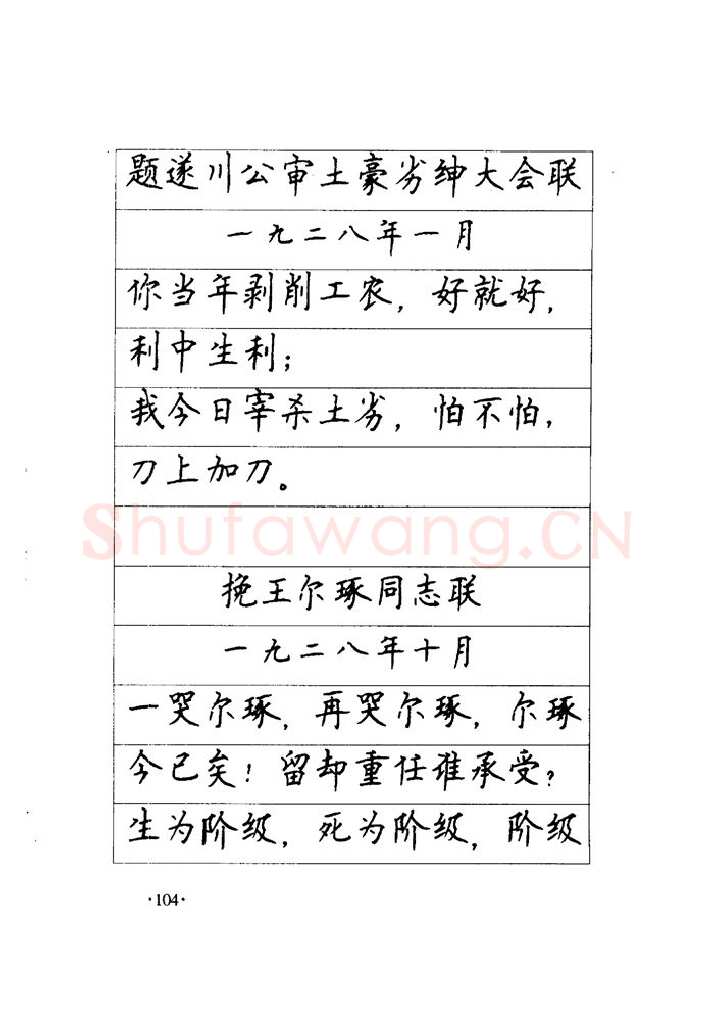 题遂川公审土豪劣绅大会联
一九二八年一月
你当年剥削工农，好就好，
利中生利；
我今日宰杀土劣，怕不怕，
刀上加刀。
Shufawang.CN
挽王尔琢同志联
一九二八年十月
一哭尔琢，再哭尔琢，尔琢
今已矣！留却重任谁承受？
生为阶级，死为阶级，阶级
·104·